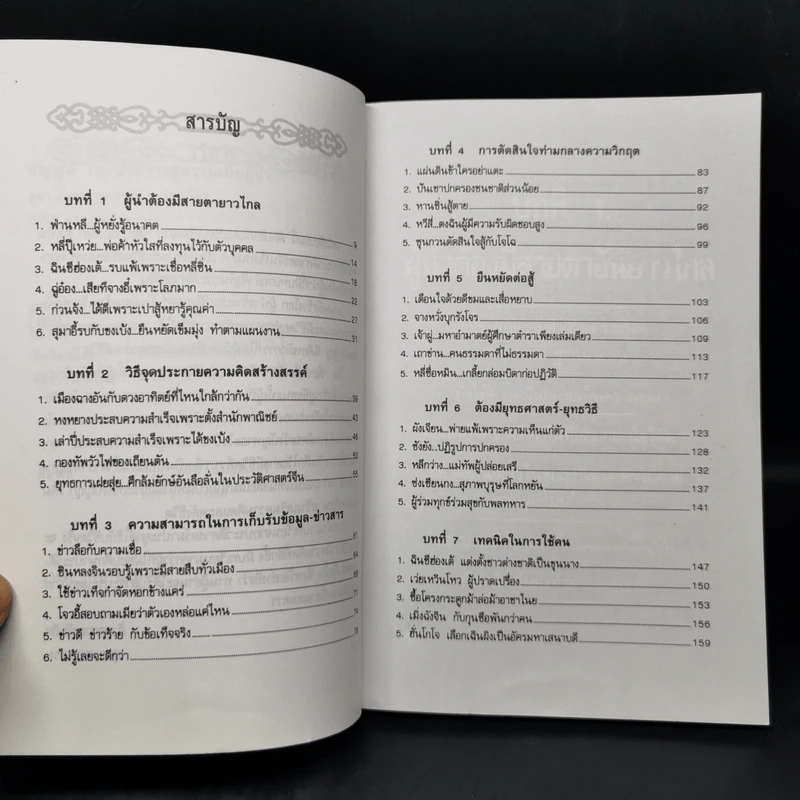 สารบัญ
บทที่ 1 ผู้นำต้องมีสายตายาวไกล
1. ฟ่านหลี...ผู้หยั่งรู้อนาคต 9
2. หลี่ปู๊เหว่ย...พ่อค้าหัวใสที่ลงทุนไว้กับตัวบุคคล 14
3. ฉินซีฮ่องเต้...รบแพ้เพราะเชื่อหลี่ซิ่น 18
4. ฉู่อ๋อง...เสียทีจางอี้เพราะโลภมาก 22
5. ก่วนจ้ง...ได้ดีเพราะเปาสู้หยารู้คุณค่า 27
6. สุมาอี้รบกับขงเบ้ง...ยืนหยัดเข็มมุ่ง ทำตามแผนงาน 31
บทที่ 2 วิธีจุดประกายความคิดสร้างสรรค์
1. เมืองฉางอันกับดวงอาทิตย์ที่ไหนใกล้กว่ากัน 39
2. หงหยางประสบความสำเร็จเพราะตั้งสำนักพาณิชย์ 43
3. เล่าปี่ประสบความสำเร็จเพราะได้ขงเบ้ง 46
4. กองทัพวัวไฟของเถียนตัน 50
5. ยุทธการเฝยสุ่ย...ศึกล้มยักษ์อันลือลั่นในประวัติศาสตร์จีน 55
บทที่ 3 ความสามารถในการเก็บรับข้อมูล-ข่าวสาร
1. ข่าวลือกับความเชื่อ 61
2. ซินหลงจวินรอบรู้เพราะมีสายสืบทั่วเมือง 64
3. ใช้ข่าวเท็จกำจัดหอกข้างแคร่
4. โจวอี้สอบถามเมียว่าตัวเองหล่อแค่ไหน 71
5. ข่าวดี ข่าวร้าย กับข้อเท็จจริง
6. ไม่รู้เลยจะดีกว่า
บทที่ 4 การตัดสินใจท่ามกลางความวิกฤต
1. แผ่นดินข้าใครอย่าแตะ 83
2. บันเชาปกครองชนชาติส่วนน้อย 87
3. หานซิ่นสู้ตาย 92
4. หวีสี่...ตงฉินผู้มีความรับผิดชอบสูง 96
5. ซุนกวนตัดสินใจสู้กับโจโฉ 99
บทที่ 5 ยืนหยัดต่อสู้
1. เตือนใจด้วยดีขมและเสื่อหยาบ 103
2. จางหวั่งบุกรังโจร 106
3. เจ้าผู่...มหาอำมาตย์ผู้ศึกษาตำราเพียงเล่มเดียว 109
4. เถาข่าน...คนธรรมดาที่ไม่ธรรมดา 113
5. หลี่ซื่อหมิน...เกลี้ยกล่อมบิดาก่อปฏิวัติ 117
บทที่ 6 ต้องมียุทธศาสตร์-ยุทธวิธี
1. ผังเจียน...พ่ายแพ้เพราะความเห็นแก่ตัว 123
2. ซังยัง...ปฏิรูปการปกครอง 128
3. หลีกว่าง...แม่ทัพผู้ปล่อยเสรี 132
4. ซ่งเซียนกง...สุภาพบุรุษที่โลกหยัน 137
5. ผู้ร่วมทุกข์ร่วมสุขกับพลทหาร 141
บทที่ 7 เทคนิคในการใช้คน
1. ฉินซีฮ่องเต้ แต่งตั้งชาวต่างชาติเป็นขุนนาง 147
2. เว่ยเหวินโหว ผู้ปราดเปรื่อง 150
3. ซื้อโครงกระดูกม้าล่อม้าอาชาไนย 153
4. เมิ่งฉังจวิน กับกุนซือพันกว่าคน 156
5. ฮั่นโกโจ เลือกเฉินผิงเป็นอัครมหาเสนาบดี 159